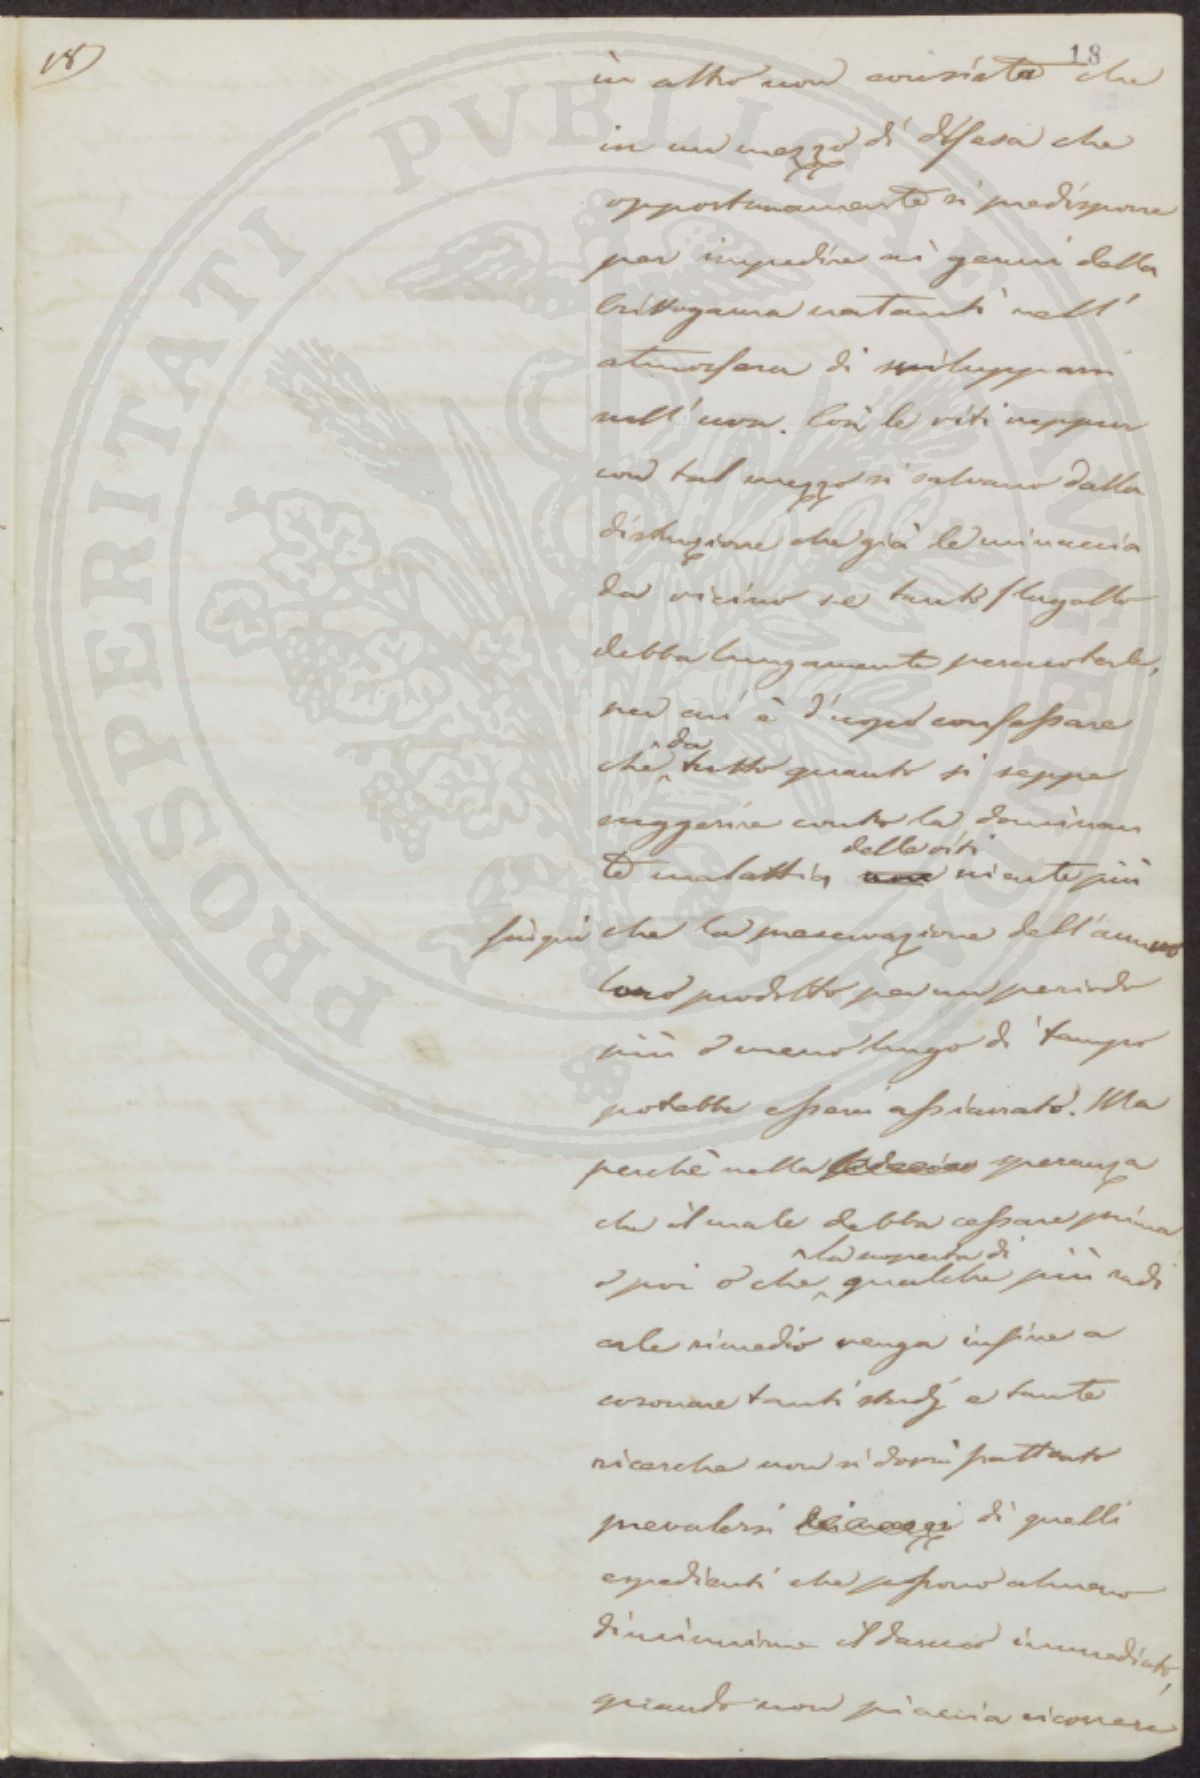 18)
18
in altro non consista che
in un mezzo di difesa che
opportunamente si predispone
per impedire ai germi della
crittogama natanti nell'
atmosfera di svilupparsi
nell'uva. Così le viti neppur
con tal mezzo si salvano dalla
distruzione che già le minaccia
da vicino se tanto flagello
debba lungamente percuoterle,
per cui è d'uopo confessare
che da tutto quanto si seppe
suggerire contro la dominan
te malattia delle viti non niente più
fin qui che la preservazione dell'annuo
loro prodotto per un periodo
più o meno lungo di tempo
potebbe essersi assicurato. Ma
perchè nella speranza
che il male debba cessare prima
o poi o che la scoperta di qualche più radi
cale rimedio venga infine a
coronare tanti studj e tante
ricerche non si dovrà frattanto
prevalersi dei mezzi di quelli
espedienti che possono almeno
diminuirne il danno immediato,
quando non piaccia ricorrere
PROSPERITATI PVBLICAE